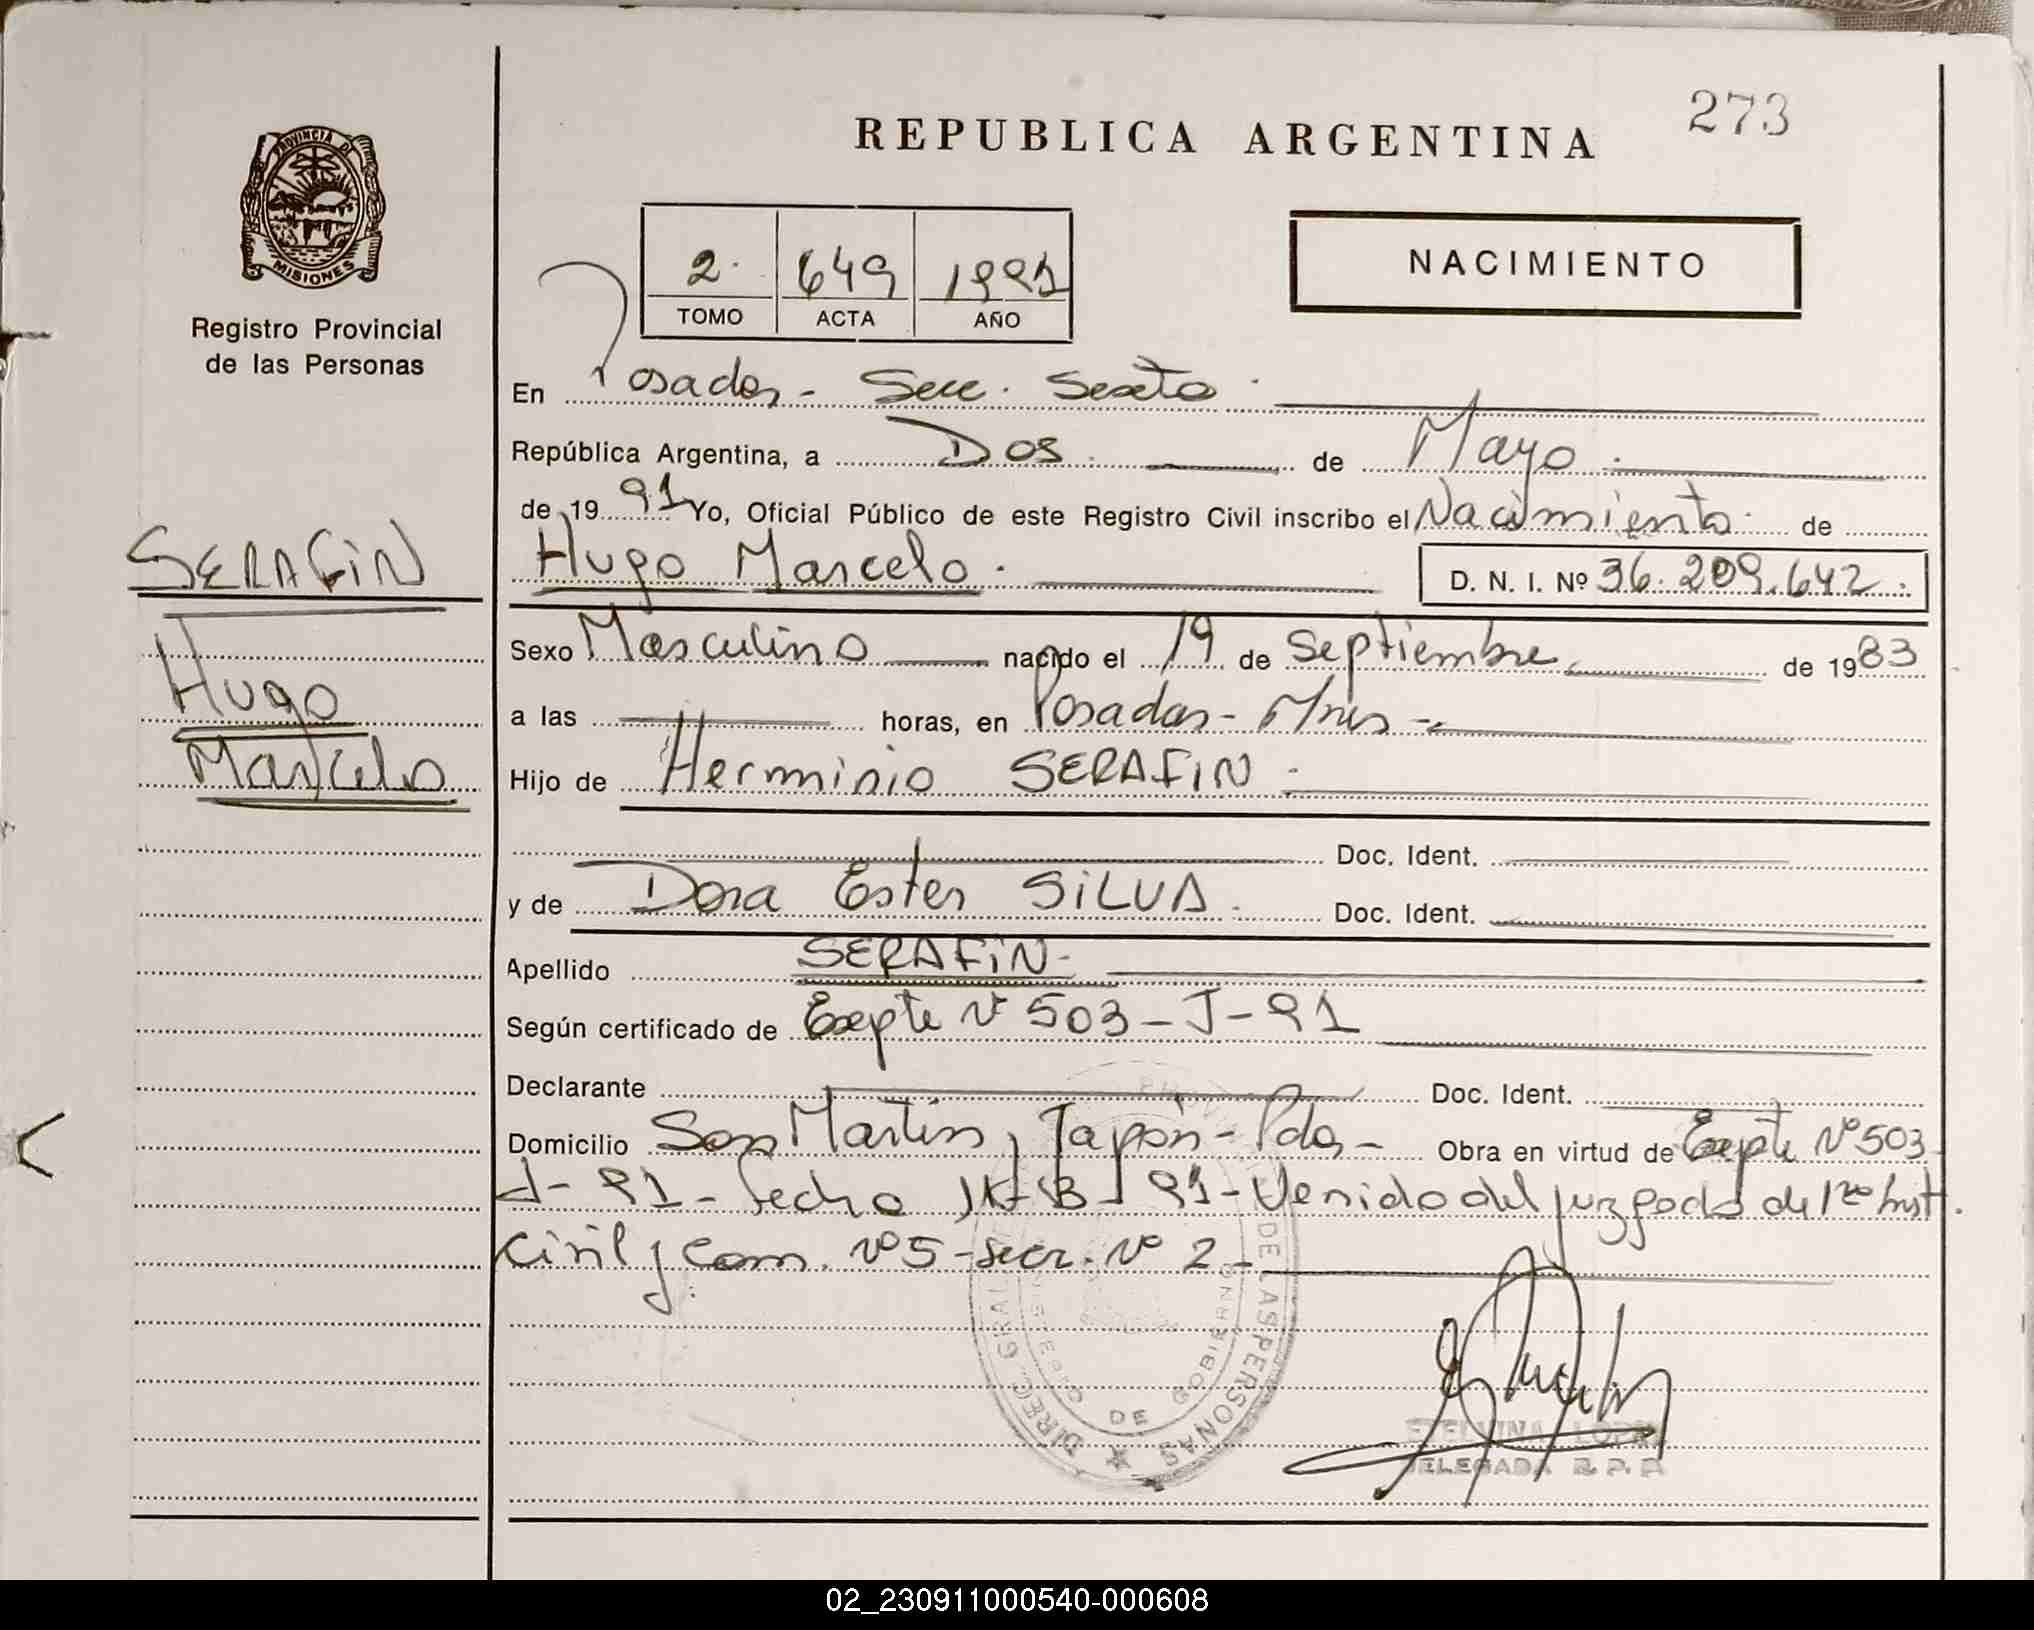 REPUBLICA ARGENTINA
273
PROVINCIA DE
MISIONES
Registro Provincial
de las Personas
2. 649 1991
TOMO ACTA AÑO
NACIMIENTO
En Posadas - Secc. Sexta.
República Argentina, a Dos. de Mayo.
de 19 91 Yo, Oficial Público de este Registro Civil inscribo el Nacimiento. de
Hugo Marcelo. D. N. I. Nº 36.209.642.
SERAFiN
Hugo
Marcelo
Sexo Masculino nacido el 19 de Septiembre de 1983
a las horas, en Posadas - Mnes -
Hijo de Herminio SERAFIN -
Doc. Ident.
y de Dora Ester SiLVA. Doc. Ident.
Apellido SERAFiN-
Según certificado de Expte Nº 503 - J - 91
Declarante Doc. Ident.
Domicilio San Martin y Japón - Pdas - Obra en virtud de Expte Nº 503
J - 91 - fecha 91 - Venido del juzgado de 1ra Inst.
Civil y Com. Nº 5 - Secr. Nº 2 -
DIREC. GRAL. DE LAS PERSONAS
DE GOBIERNO
ETELVINA
DELEGADA R. P. P.
02_230911000540-000608